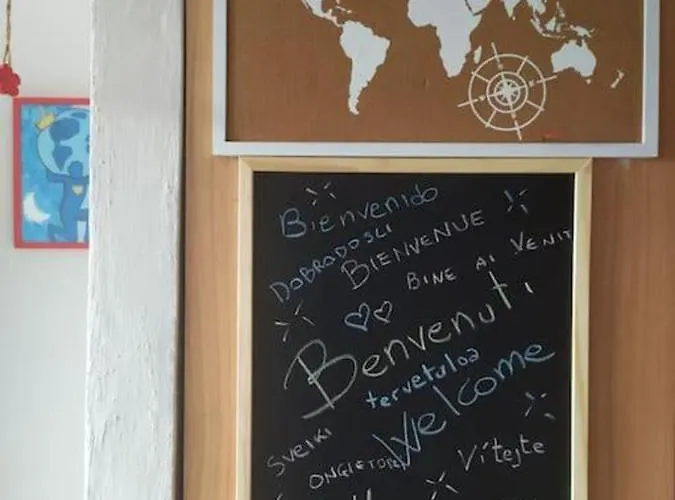 Bienvenido
DOBRODOSLI
BIENVENUE
BINE AI VENIT
Benvenuti
tervetuloa
Welcome
SVEIKI
ONGIETORRI
Vítejte